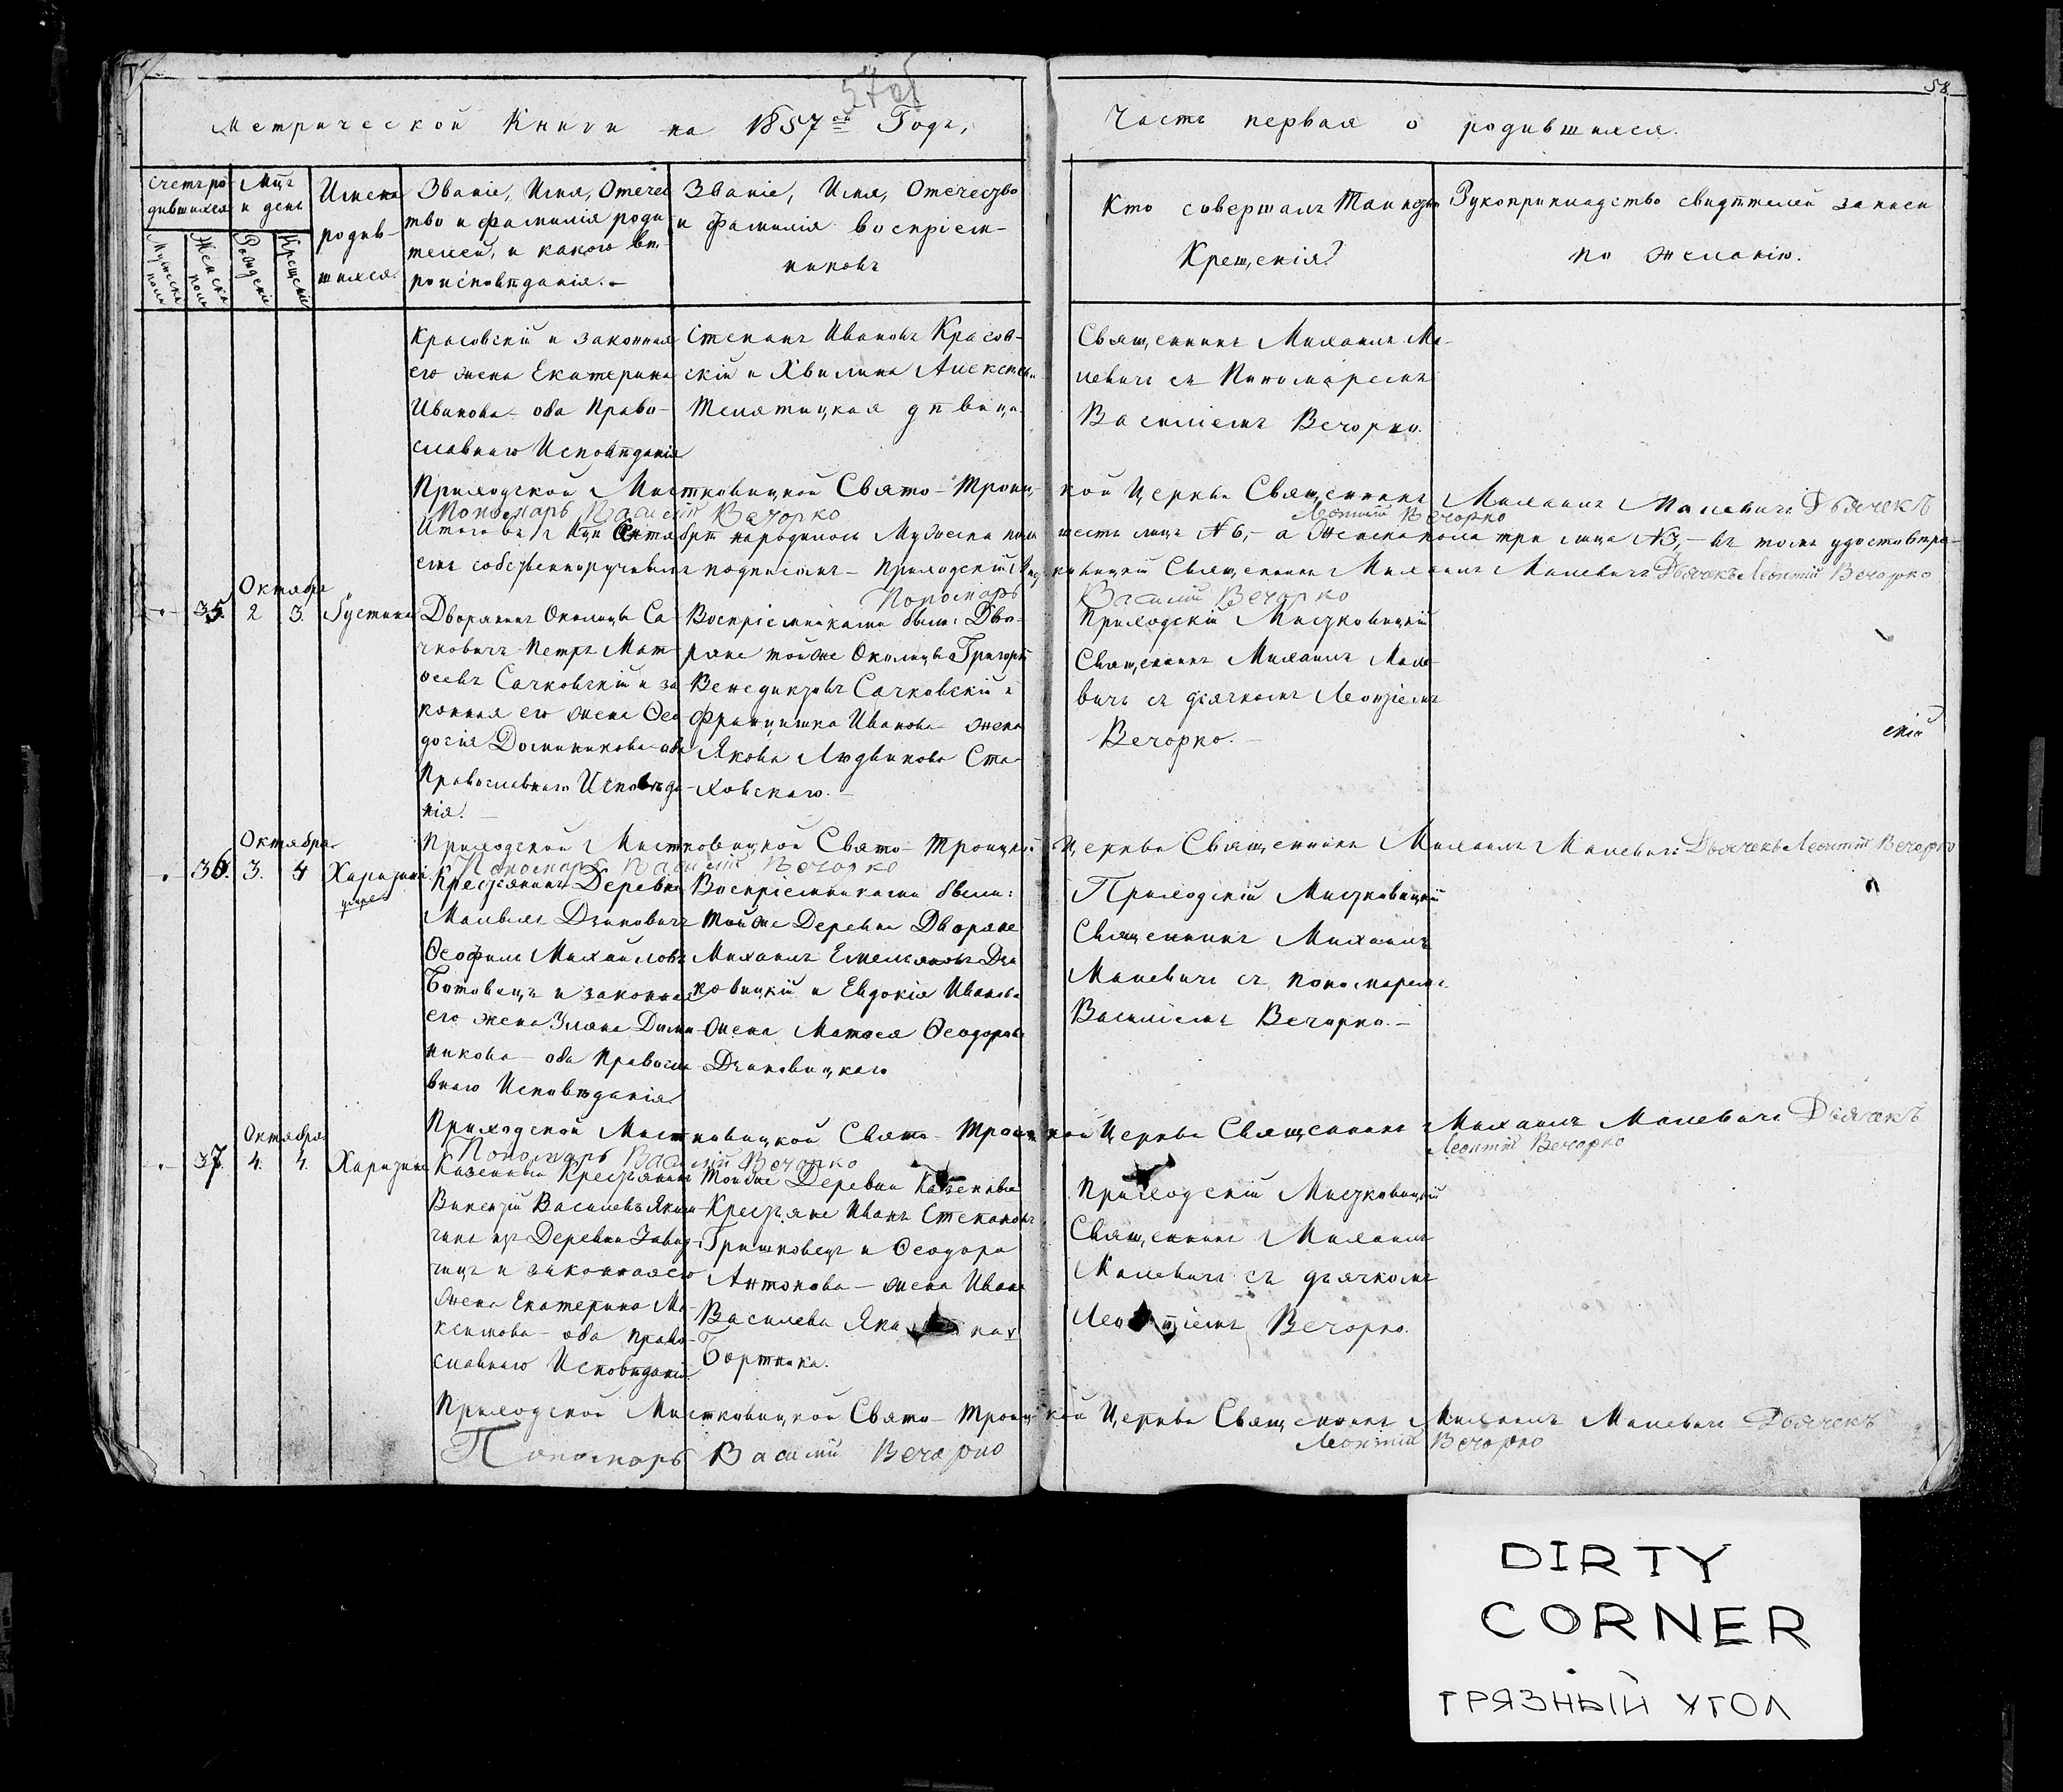 57 об
58
Метрической Книги на 1857ой Годъ,
Часть первая о родившихся.
Счетъ родившихся
Мужеска пола
Женска пола
Мцъ и день
Рожденія
Крещенія
Имена родившихся.
Званіе, Имя, Отечес
тво и фамилія роди
телей, и какого вѣ
роисповѣданія. –
Званіе, Имя, Отечество
и Фамилія воспріем-
никовъ
Кто совершалъ Таинство
Крещенія?
Рукоприкладство свидѣтелей записи
по желанію.
Красовскій и законная
его жена Екатерина
Иванова – оба Право-
славнаго Исповѣданія
Степанъ Ивановъ Красов-
скій и Хвилина
Телятицкая дѣвица.
Священникъ Михаилъ Ма-
левичъ съ Пономаремъ
Василіемъ Вечорко.
Приходской Мистковицкой Свято-Троиц-кой Церкви Священникъ Михаилъ Малевичъ Дьячекъ
Пономарь Василій Вечорко Леонтій Вечорко
Итого въ Мцѣ народилось Мужеска пола шесть лицъ №6, – а Женска пола три лица №3, – въ томъ удостовѣря-
емъ собственноручнымъ подписомъ – Приходскій Священникъ Михаилъ Малевичъ Дьячекъ Леонтій Вечорко
Пономарь Василій Вечорко
Октября
35. 2 3. Іустина
Дворянинъ Околицы Са-
чковичъ Петръ Мат-
ѳеевъ Сачковскій и за
конная его жена Ѳео
досія Доминикова – оба
Православнаго Исповѣда-
нія. –
Воспріемниками были: Дво-
ряне тойже Околицы Григорій
Венедиктовъ Сачковскій и
Францишка Иванова – жена
Якова Людвикова Ста-
ховскаго. –
Приходскій Мистковицкій
Священникъ Михаилъ Мале-
вичъ съ дьячкомъ Леонтіемъ
Вечорко. –
скій
Приходской Мистковицкой Свято-Троицкой Церкви Священникъ Михаилъ Малевичъ Дьячекъ Леонтій Вечорко
Пономарь Василій Вечорко
Октября
36. 3. 4 Харитина
Крестьянинъ Деревни
Ѳеофилъ Михайловъ
и законная
его жена Уляна Доми-
никова – оба Правосла
внаго Исповѣданія.
Воспріемниками были:
тойже Деревни Дворяне
Михаилъ Емельяновъ Дзи
ковицкій и Евдокія Иванова
жена Матвея Ѳеодорова
Дзиковицкаго
Приходскій Мистковицкій
Священникъ Михаилъ
Малевичъ съ пономаремъ
Василіемъ Вечорко. –
Приходской Мистковицкой Свято-Троицкой Церкви Священникъ Михаилъ Малевичъ Дьячекъ
Пономарь Василій Вечорко Леонтій Вечорко
Октября
37. 4. 4. Харитина
Казенный Крестьянинъ
Викентій Василевъ
изъ Деревни
и законная его
жена Екатерина Ма-
ксимова – оба право-
славнаго Исповѣданія.
Тойже Деревни Казенные
Крестьяне Иванъ Степановъ
Гришковецъ и Ѳеодора
Антонова – жена Ивана
Василева
Бортника.
Приходскій Мистковицкій
Священникъ Михаилъ
Малевичъ съ дьячкомъ
Леонтіемъ Вечорко.
Приходской Мистковицкой Свято-Троицкой Церкви Священникъ Михаилъ Малевичъ Дьячекъ
Пономарь Василій Вечорко Леонтій Вечорко
DIRTY
CORNER
ГРЯЗНЫЙ УГОЛ